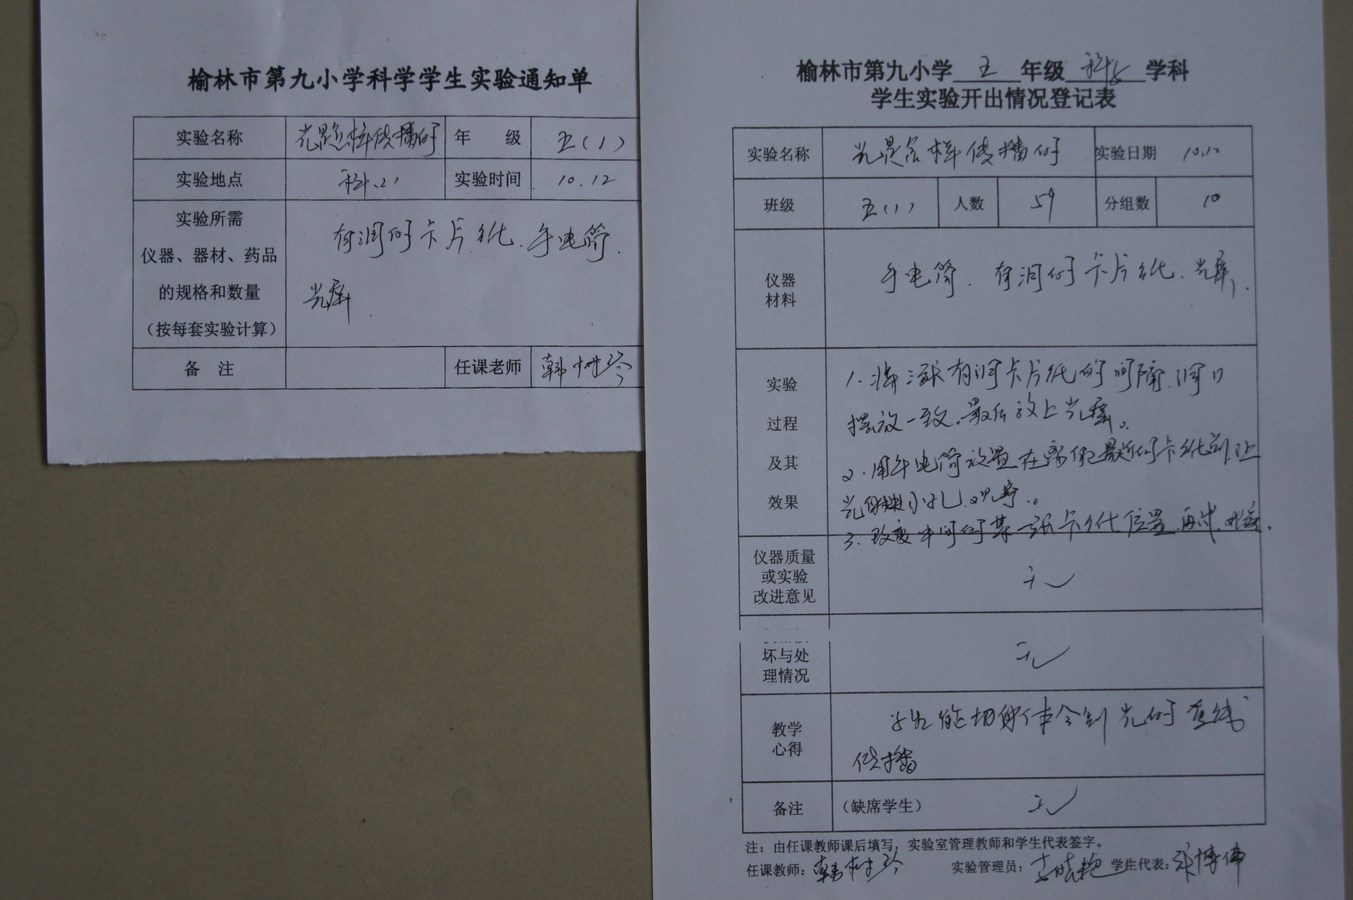 榆林市第九小学科学学生实验通知单
实验名称 光是怎样传播的 年 级 五(1)
实验地点 科.21 实验时间 10.12
实验所需
仪器、器材、药品
的规格和数量
(按每套实验计算)
有洞的卡片纸、手电筒、
光屏.
备 注 任课老师 韩树琴
榆林市第九小学 五 年级 科学 学科
学生实验开出情况登记表
实验名称 光是怎样传播的 实验日期 10.12
班级 五(1) 人数 59 分组数 10
仪器
材料
手电筒、有洞的卡片纸、光屏、
实验
过程
及其
效果
1. 将 有洞卡片纸的间隔、洞口
摆放一致、最后放上光屏。
2. 用手电筒放置在离 最近的卡纸前让
光 小孔、观察。
3. 改变中间的某一张卡纸位置、再 观察.
仪器质量
或实验
改进意见
无
坏与处
理情况
无
教学
心得
学生能切身体会到光的直线
传播
备注 (缺席学生) 无
注：由任课教师课后填写，实验室管理教师和学生代表签字。
任课教师: 韩树琴 实验管理员: 学生代表: